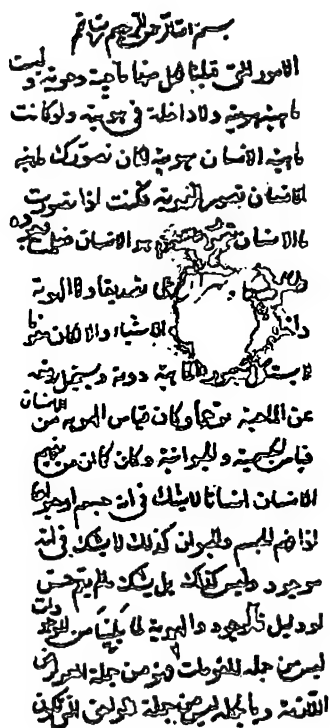 بسم الله الرحمن الرحيم
الامور التي قبلنا لكل منها ماهية وهوية و ليست
ماهيته هويته ولا داخلة في هويته ولو كانت
ماهية الانسان هويته لكان تصورك ماهية
الانسان تصور الهوية فكنت اذا تصورت
ما الانسان تصورت هو الانسان
تصديقا ولا الهوية
الاشياء والا لكان
لا يستكمل تصور الماهية دونه ويستحيل رفعه
عن الماهية توهما وكان قياس الهوية من الانسان
قياس الجسمية والحيوانية وكان كما ان من يفهم
الانسان انسانا لا يشك في انه جسم او حيوان
اذا فهم الجسم والحيوان كذلك لا يشك في انه
موجود وليس كذلك بل يشك ما لم يقم حس
او دليل فالوجود والهوية لما بينا من
ليس من جملة المقومات فهو من جملة العوارض
اللازمة وبالجملة ليس من جملة اللواحق التي تكون